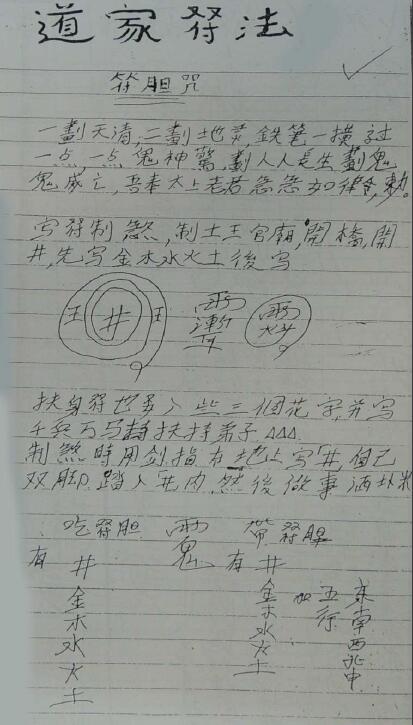 道家符法
符胆咒
一劃天清,二劃地灵,鉄筆一横
一点一点鬼神驚,劃人人長生劃鬼
鬼威亡,吾奉太上老君急急如律令,敕。
写符制煞,制土王宫廟,開橋,開
井,先写金木水火土後写
王 井 王
扶身符也 入些三個花字,并写
千兵万马 扶持弟子△△△
制煞時用剑指在地上写「井,自己
双脚踏入「井内,然後做事洒
吃符胆 帶符胆
有 井 有 井
金 木 水 火 土
金 木 水 火 土
加 五行
東南西北中